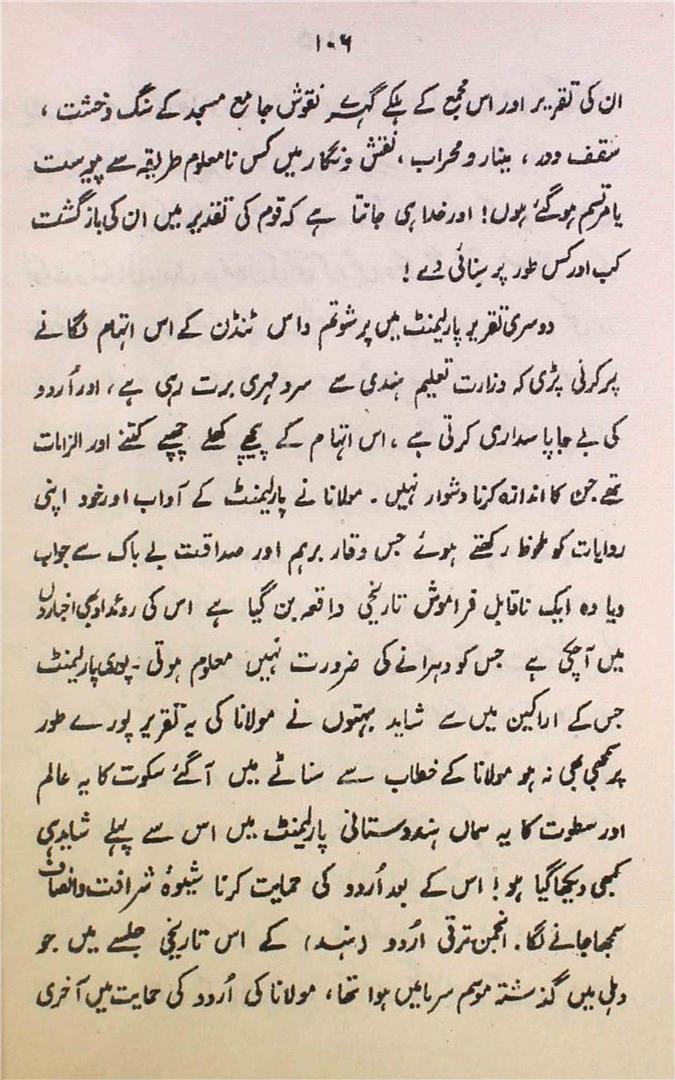 ۱۰۶
ان کی تقریر اور اس مجمع کے ہلکے گہرے نقوش جامع مسجد کے سنگ وخشت ،
سقف ودر ، مینار و محراب ، نقش ونگار میں کس نامعلوم طریقہ سے پیوست
یا مرتسم ہوگئے ہوں! اور خدا ہی جانتا ہے کہ قوم کی تقدیر میں ان کی بازگشت
کب اور کس طور پر سنائی دے !
دوسری تقریر پارلیمنٹ میں پرشوتم داس ٹنڈن کے اس اتہام لگانے
پر کرنی پڑی کہ وزارت تعلیم ہندی سے سردمہری برت رہی ہے ، اور اُردو
کی بے جا پاسداری کرتی ہے ، اس اتہام کے پیچھے کھلے چھپے کتنے اور الزامات
تھے جن کا اندازہ کرنا دشوار نہیں ۔ مولانا نے پارلیمنٹ کے آداب اور خود اپنی
روایات کو ملحوظ رکھتے ہوئے جس وقار برہم اور صداقت بے باک سے جواب
دیا وہ ایک ناقابل فراموش تاریخی واقعہ بن گیا ہے اس کی روئداد بھی اخباروں
میں آچکی ہے جس کو دہرانے کی ضرورت نہیں معلوم ہوتی ۔ پوری پارلیمنٹ
جس کے اراکین میں سے شاید بہتوں نے مولانا کی یہ تقریر پورے طور
پر سمجھی بھی نہ ہو مولانا کے خطاب سے سناٹے میں آگئے سکوت کا یہ عالم
اور سطوت کا یہ سماں ہندوستانی پارلیمنٹ میں اس سے پہلے شاید ہی
کبھی دیکھا گیا ہو! اس کے بعد اُردو کی حمایت کرنا شیوۂ شرافت و انصاف
سمجھا جانے لگا ۔ انجمن ترقی اُردو (ہند) کے اس تاریخی جلسے میں جو
دہلی میں گذشتہ موسم سرما میں ہوا تھا ، مولانا کی اُردو کی حمایت میں آخری